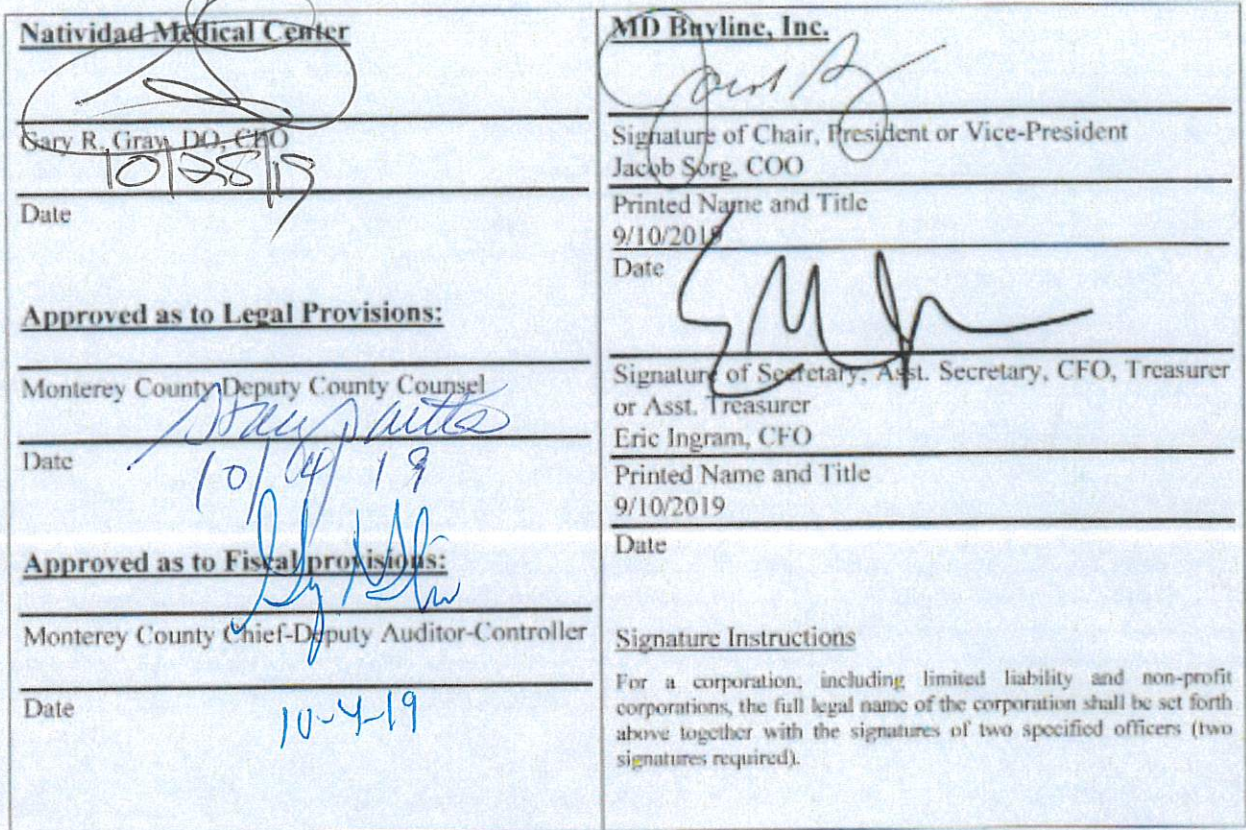 Natividad Medical Center
Gary R. Gray, DO, CEO
10/28/19
Date
Approved as to Legal Provisions:
Monterey County Deputy County Counsel
Date
10/04/19
Approved as to Fiscal provisions:
Monterey County Chief-Deputy Auditor-Controller
Date
10-4-19
MD Buyline, Inc.
Signature of Chair, President or Vice-President
Jacob Sorg, COO
Printed Name and Title
9/10/2019
Date
Signature of Secretary, Asst. Secretary, CFO, Treasurer
or Asst. Treasurer
Eric Ingram, CFO
Printed Name and Title
9/10/2019
Date
Signature Instructions
For a corporation, including limited liability and non-profit
corporations, the full legal name of the corporation shall be set forth
above together with the signatures of two specified officers (two
signatures required).